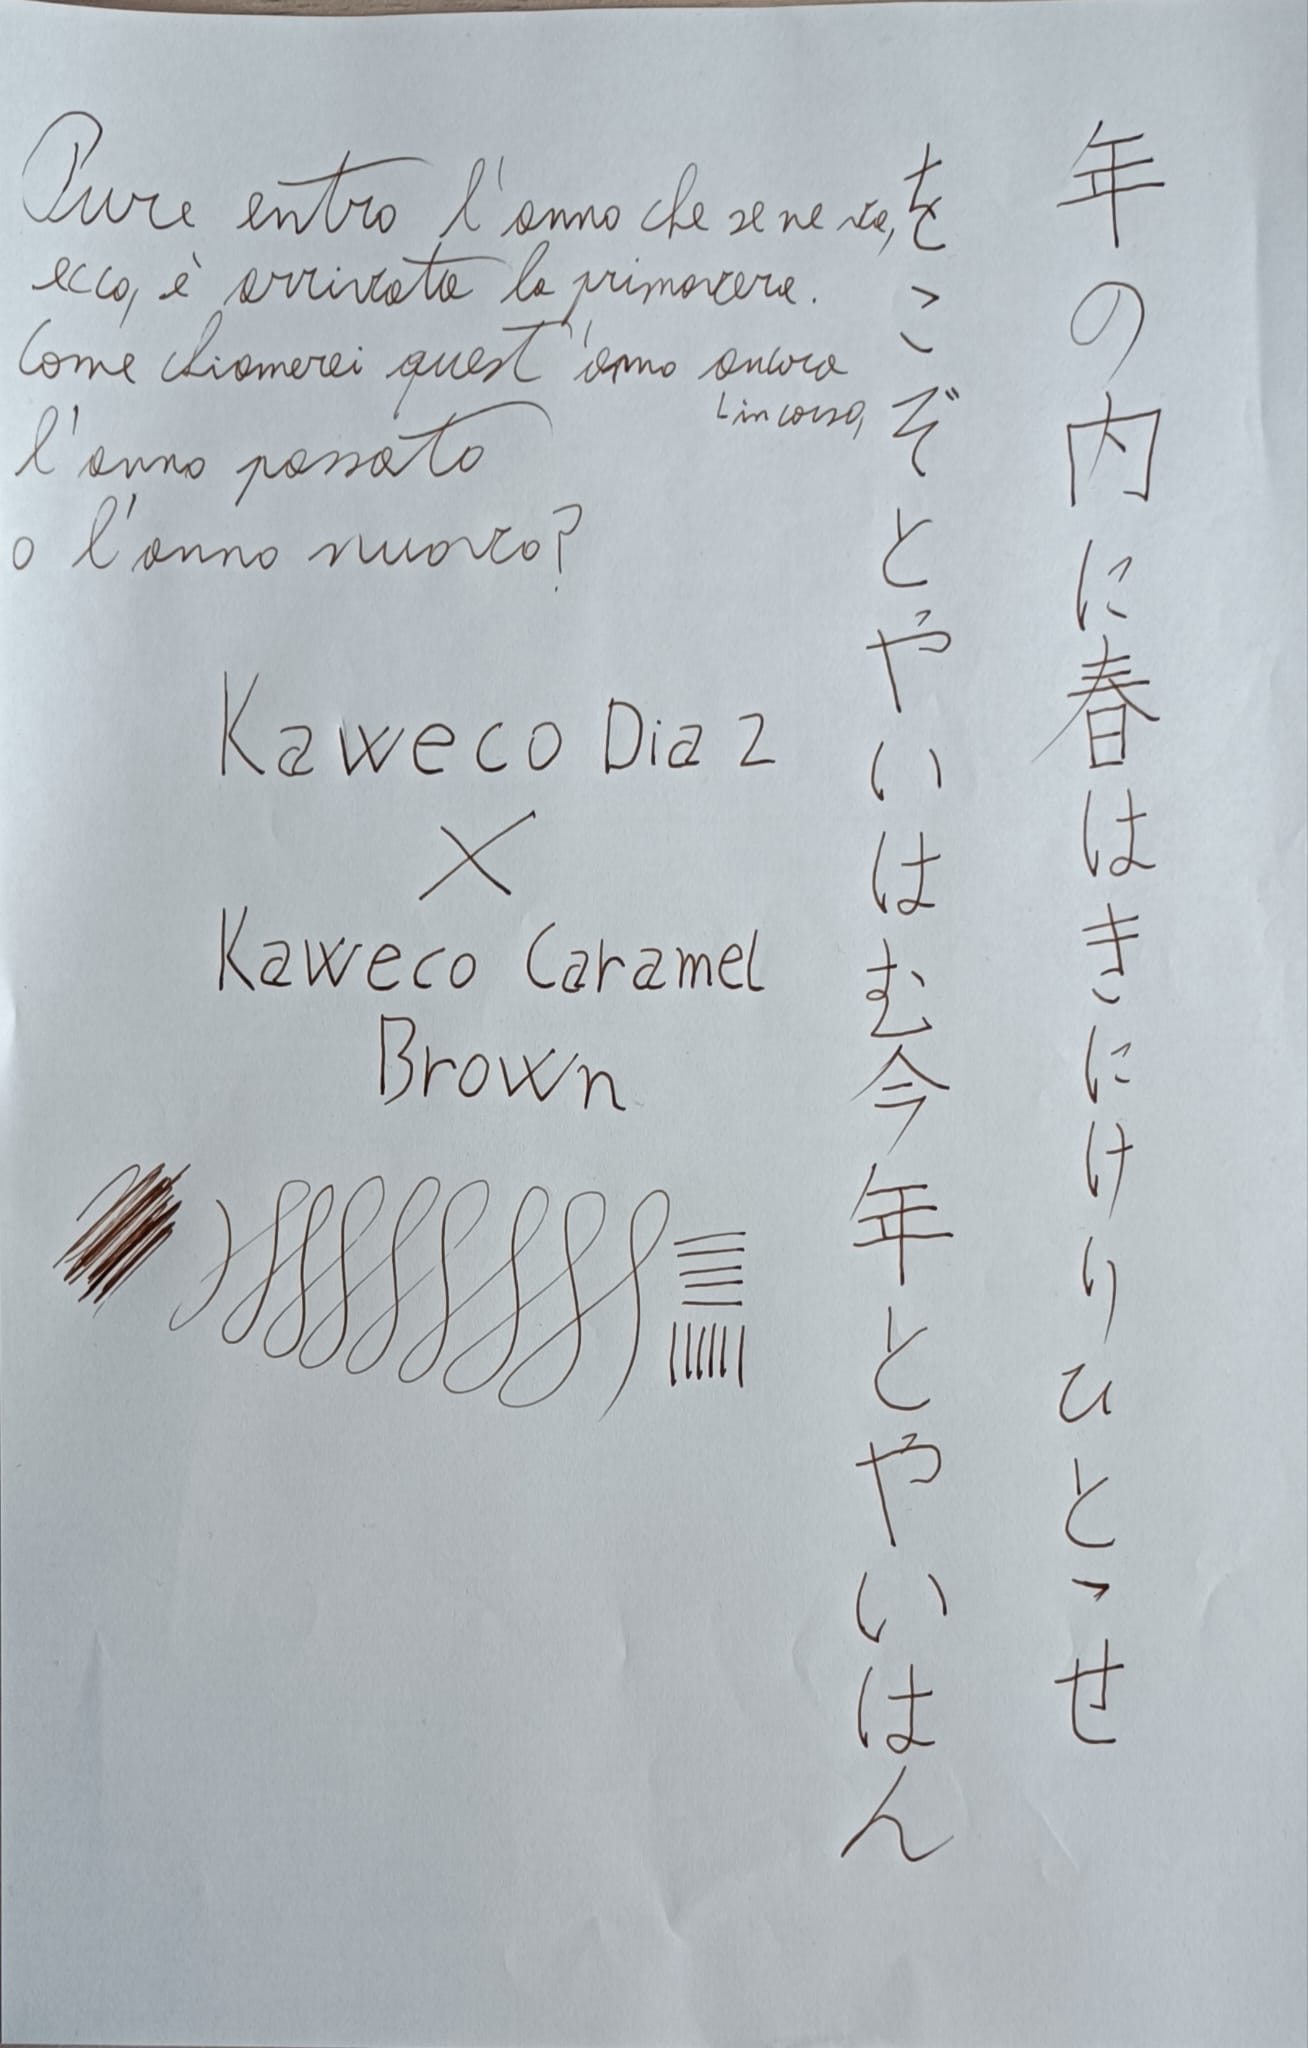 年の内に春はきにけりひとゝせ
をこぞとやいはむ今年とやいはん
Pure entro l'anno che se ne va,
ecco, è arrivata la primavera.
Come chiamerei quest'anno ancora
in corso,
l'anno passato
o l'anno nuovo?
Kaweco Dia 2
×
Kaweco Caramel
Brown